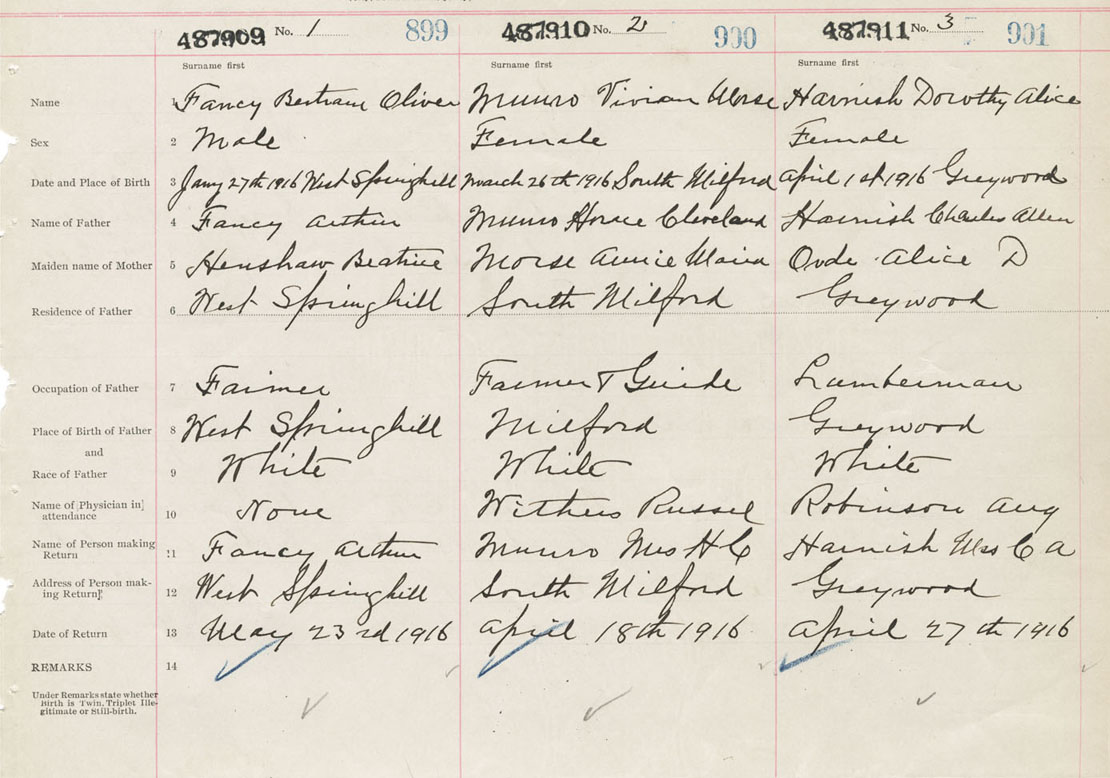 487909 No. 1 899 487910 No. 2 900 487911 No. 3 901
Surname first Surname first Surname first
Name 1 Fancy Bertram Oliver Munro Vivian Morse Harnish Dorothy Alice
Sex 2 Male Female Female
Date and Place of Birth 3 Jany 27th 1916 West Springhill March 26th 1916 South Milford April 1st 1916 Greywood
Name of Father 4 Fancy Arthur Munro Horace Cleveland Harnish Charles Allen
Maiden name of Mother 5 Henshaw Beatrice Morse Annie Maria Orde Alice D
Residence of Father 6 West Springhill South Milford Greywood
Occupation of Father 7 Farmer Farmer & Guide Lumberman
Place of Birth of Father 8 West Springhill Milford Greywood
and
Race of Father 9 White White White
Name of Physician in
attendance 10 None Withers Russel Robinson Aug
Name of Person making
Return 11 Fancy Arthur Munro Mrs H C Harnish Mrs C A
Address of Person mak-
ing Return 12 West Springhill South Milford Greywood
Date of Return 13 May 23rd 1916 April 18th 1916 April 27th 1916
REMARKS 14
Under Remarks state whether
Birth is Twin, Triplet Ille-
gitimate or Still-birth.